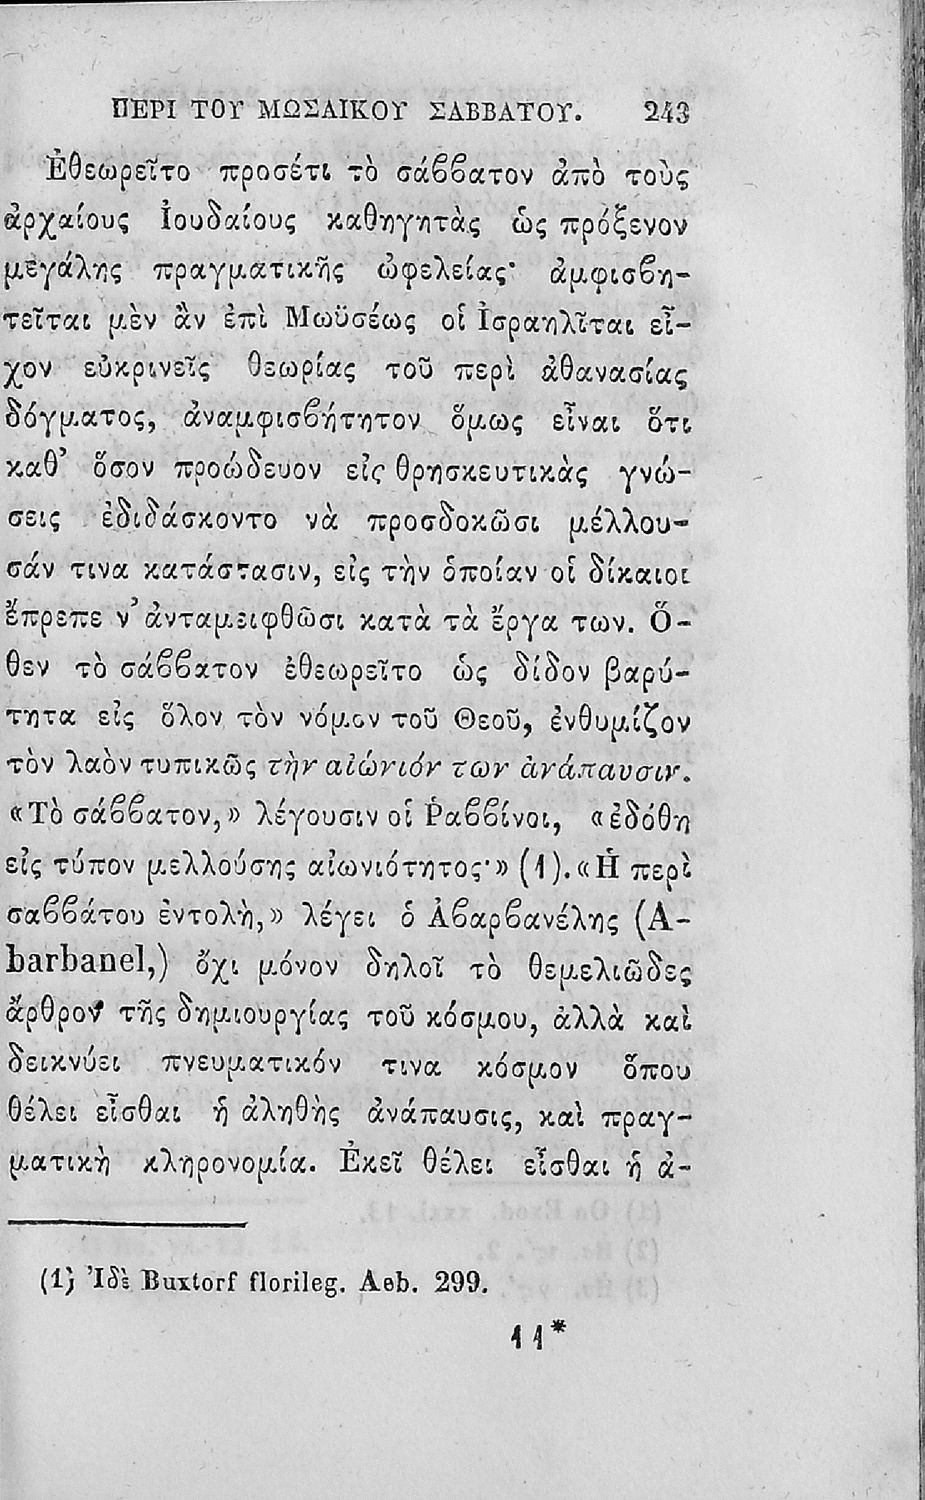 ΠΕΡΙ ΤΟΥ ΜΩΣΑΙΚΟΥ ΣΑΒΒΑΤΟΥ. 243
Ἐθεωρεῖτο προσέτι τὸ σάββατον ἀπὸ τοὺς
ἀρχαίους Ἰουδαίους καθηγητὰς ὡς πρόξενον
μεγάλης πραγματικῆς ὠφελείας· ἀμφισβη-
τεῖται μὲν ἂν ἐπὶ Μωϋσέως οἱ Ἰσραηλῖται εἶ-
χον εὐκρινεῖς θεωρίας τοῦ περὶ ἀθανασίας
δόγματος, ἀναμφισβήτητον ὅμως εἶναι ὅτι
καθ’ ὅσον προώδευον εἰς θρησκευτικὰς γνώ-
σεις ἐδιδάσκοντο νὰ προσδοκῶσι μέλλου-
σάν τινα κατάστασιν, εἰς τὴν ὁποίαν οἱ δίκαιοι
ἔπρεπε ν’ ἀνταμειφθῶσι κατὰ τὰ ἔργα των. Ὅ-
θεν τὸ σάββατον ἐθεωρεῖτο ὡς δίδον βαρύ-
τητα εἰς ὅλον τὸν νόμον τοῦ Θεοῦ, ἐνθυμίζον
τὸν λαὸν τυπικῶς τὴν αἰώνιόν των ἀνάπαυσιν.
«Τὸ σάββατον,» λέγουσιν οἱ Ῥαββίνοι, «ἐδόθη
εἰς τύπον μελλούσης αἰωνιότητος·» (1). «Ἡ περὶ
σαββάτου ἐντολὴ,» λέγει ὁ Ἀβαρβανέλης (A-
barbanel,) ὄχι μόνον δηλοῖ τὸ θεμελιῶδες
ἄρθρον τῆς δημιουργίας τοῦ κόσμου, ἀλλὰ καὶ
δεικνύει πνευματικόν τινα κόσμον ὅπου
θέλει εἶσθαι ἡ ἀληθὴς ἀνάπαυσις, καὶ πραγ-
ματικὴ κληρονομία. Ἐκεῖ θέλει εἶσθαι ἡ ἀ-
(1) Ἰδὲ Buxtorf florileg. Aeb. 299.
11*